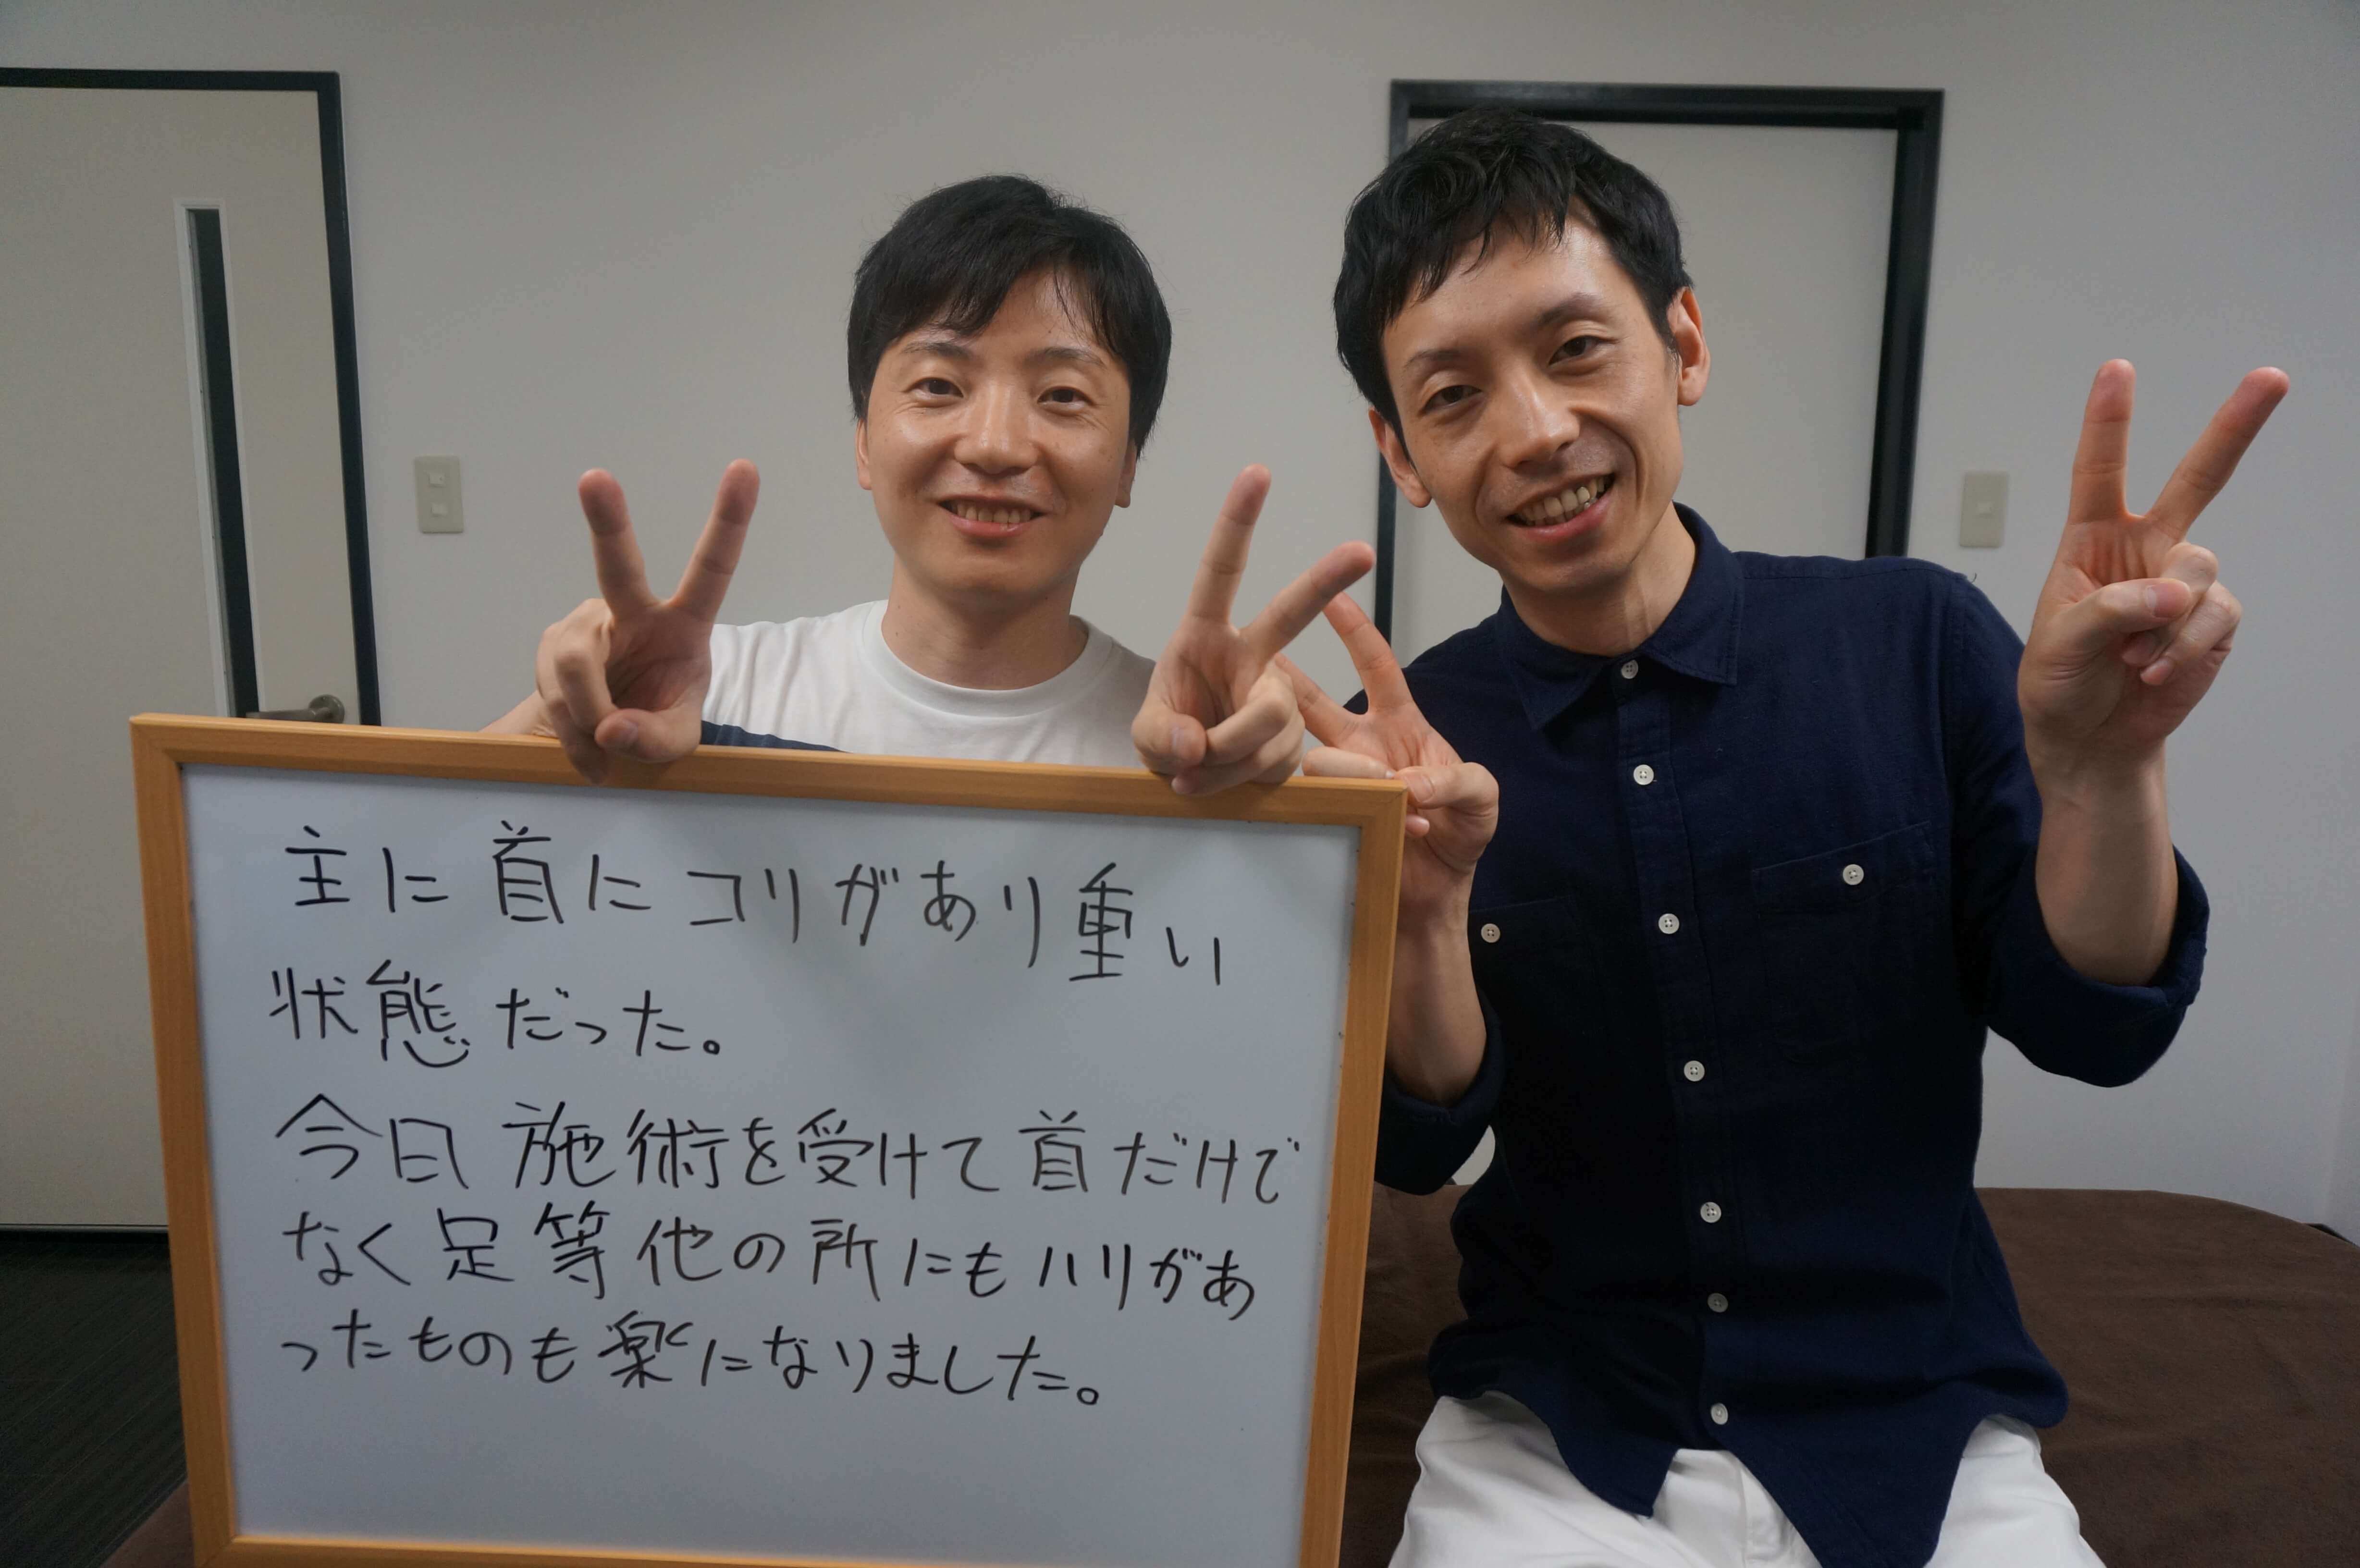 主に首にコリがあり重い
状態だった。
今日施術を受けて首だけで
なく足等他の所にもハリがあ
ったものも楽になりました。